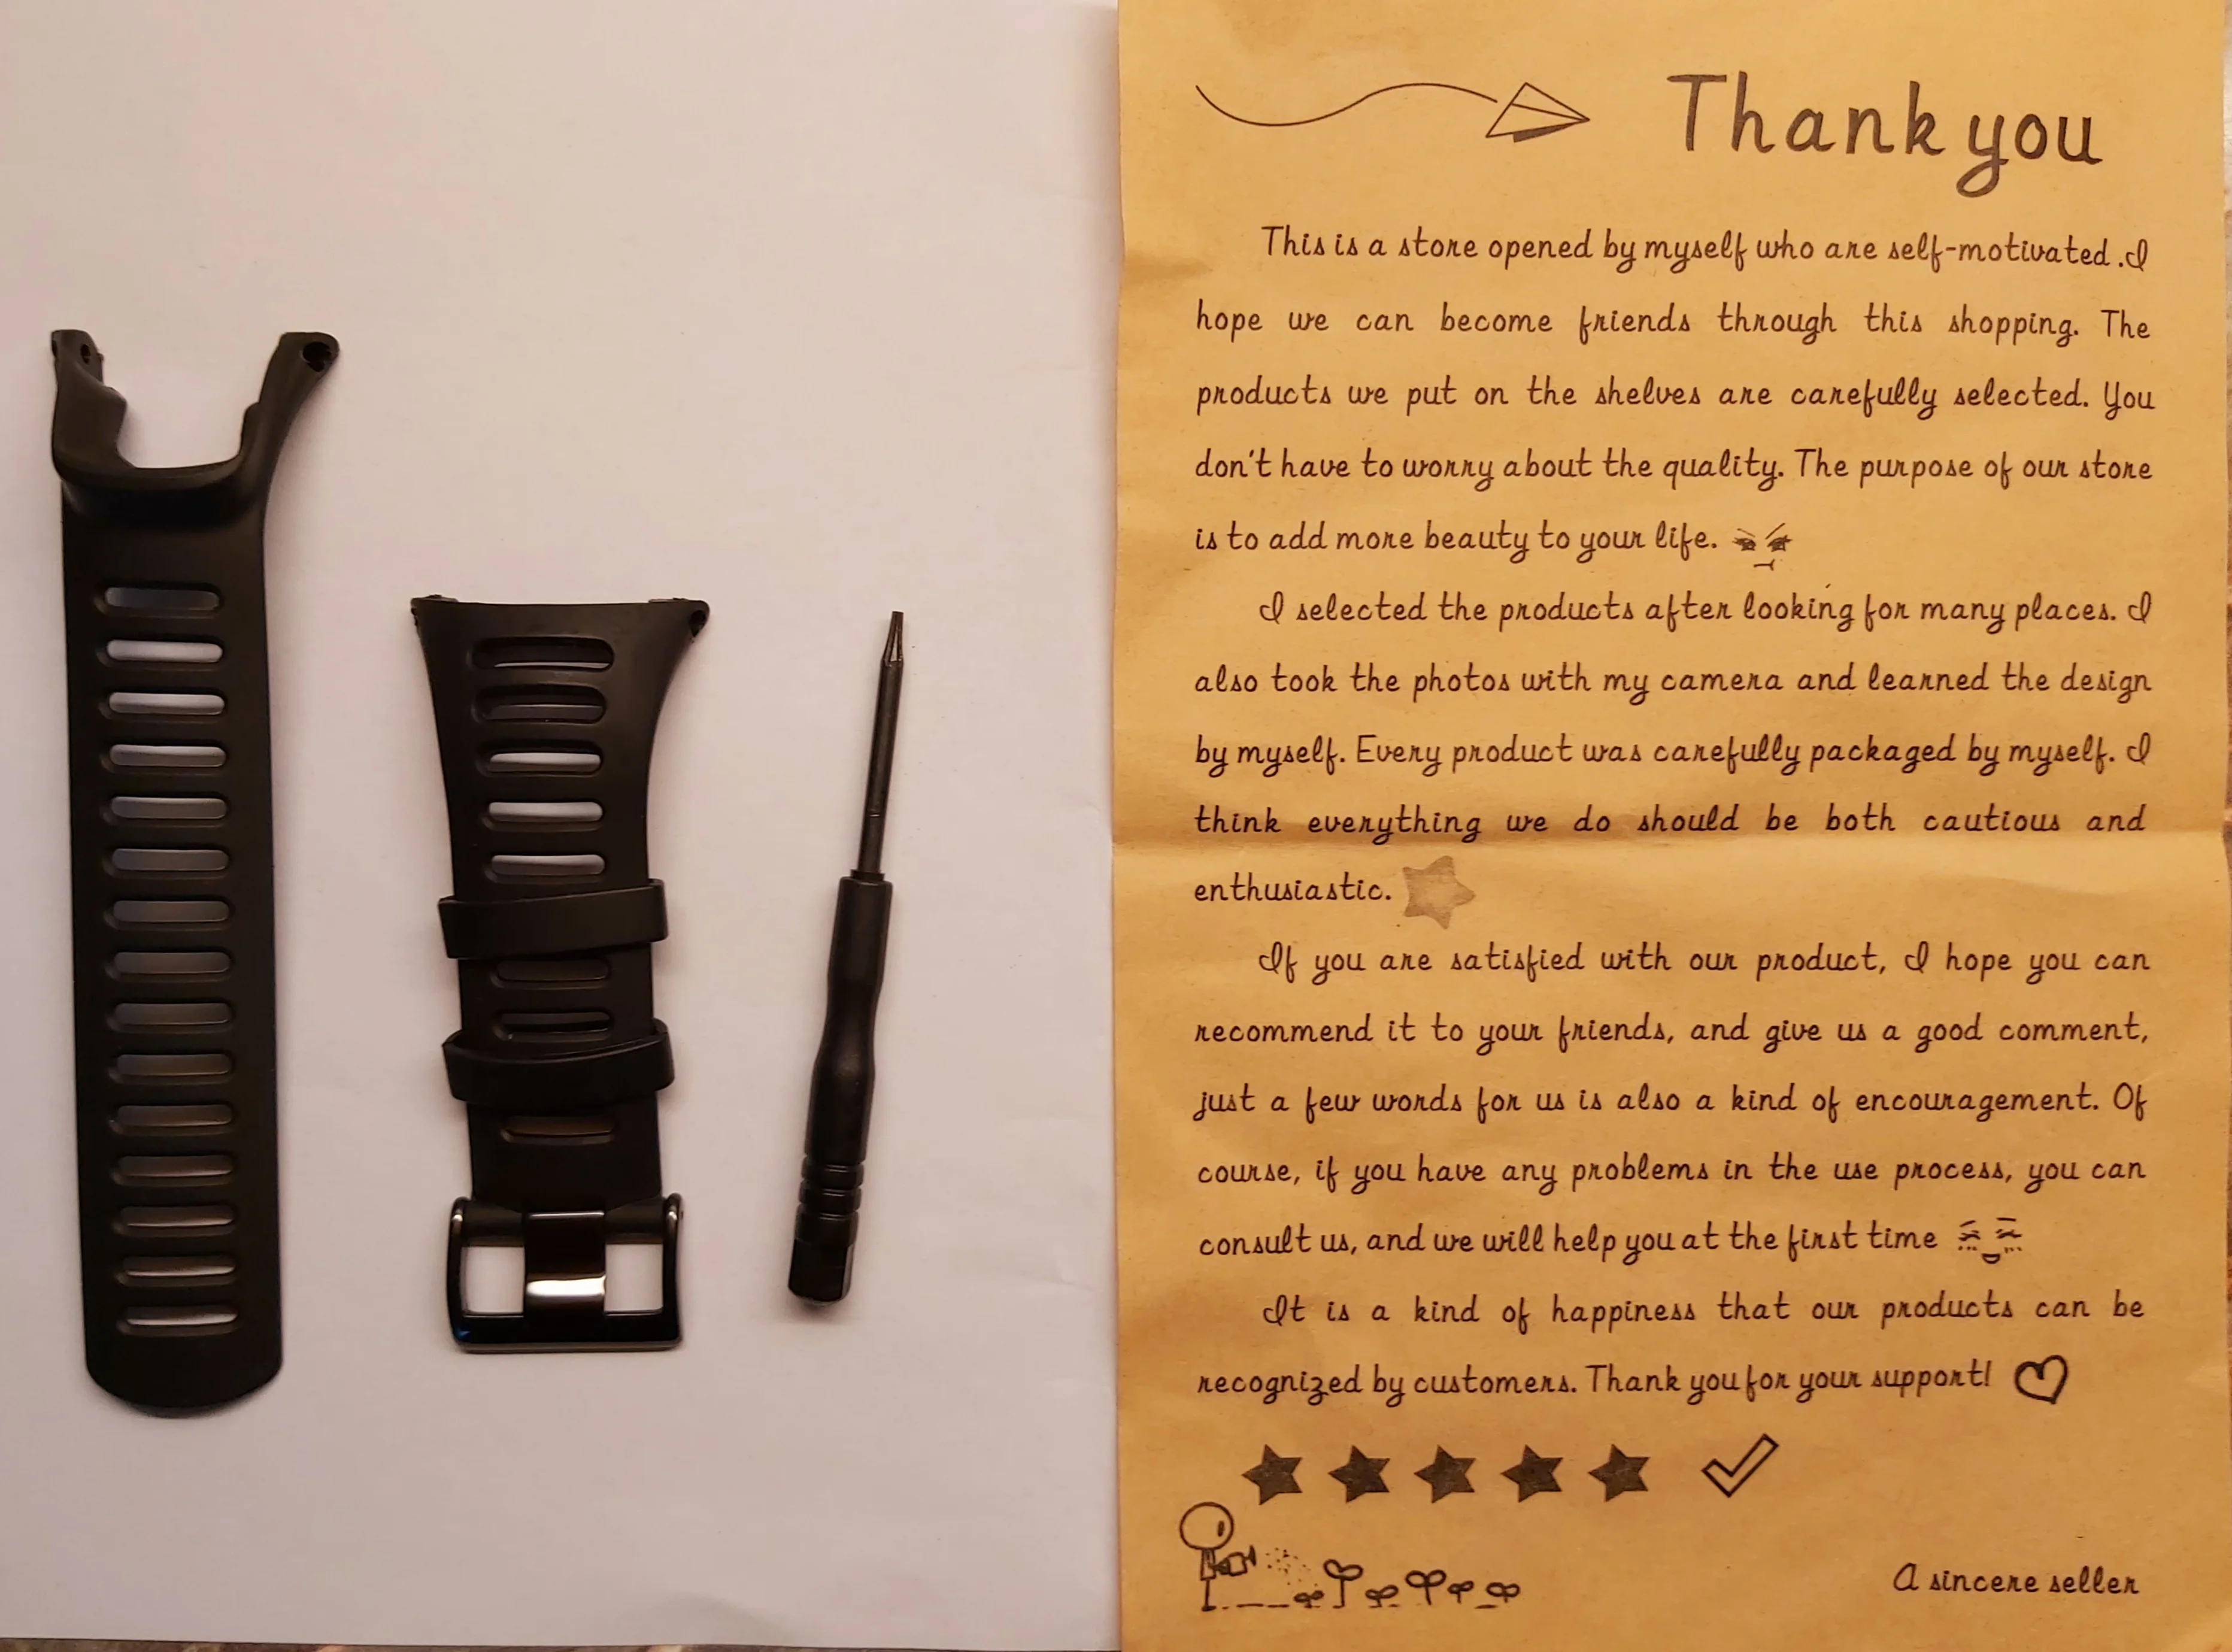 Thank you
This is a store opened by myself who are self-motivated .I
hope we can become friends through this shopping. The
products we put on the shelves are carefully selected. You
don't have to worry about the quality. The purpose of our store
is to add more beauty to your life.
I selected the products after looking for many places. I
also took the photos with my camera and learned the design
by myself. Every product was carefully packaged by myself. I
think everything we do should be both cautious and
enthusiastic.
If you are satisfied with our product, I hope you can
recommend it to your friends, and give us a good comment,
just a few words for us is also a kind of encouragement. Of
course, if you have any problems in the use process, you can
consult us, and we will help you at the first time
It is a kind of happiness that our products can be
recognized by customers. Thank you for your support!
A sincere seller